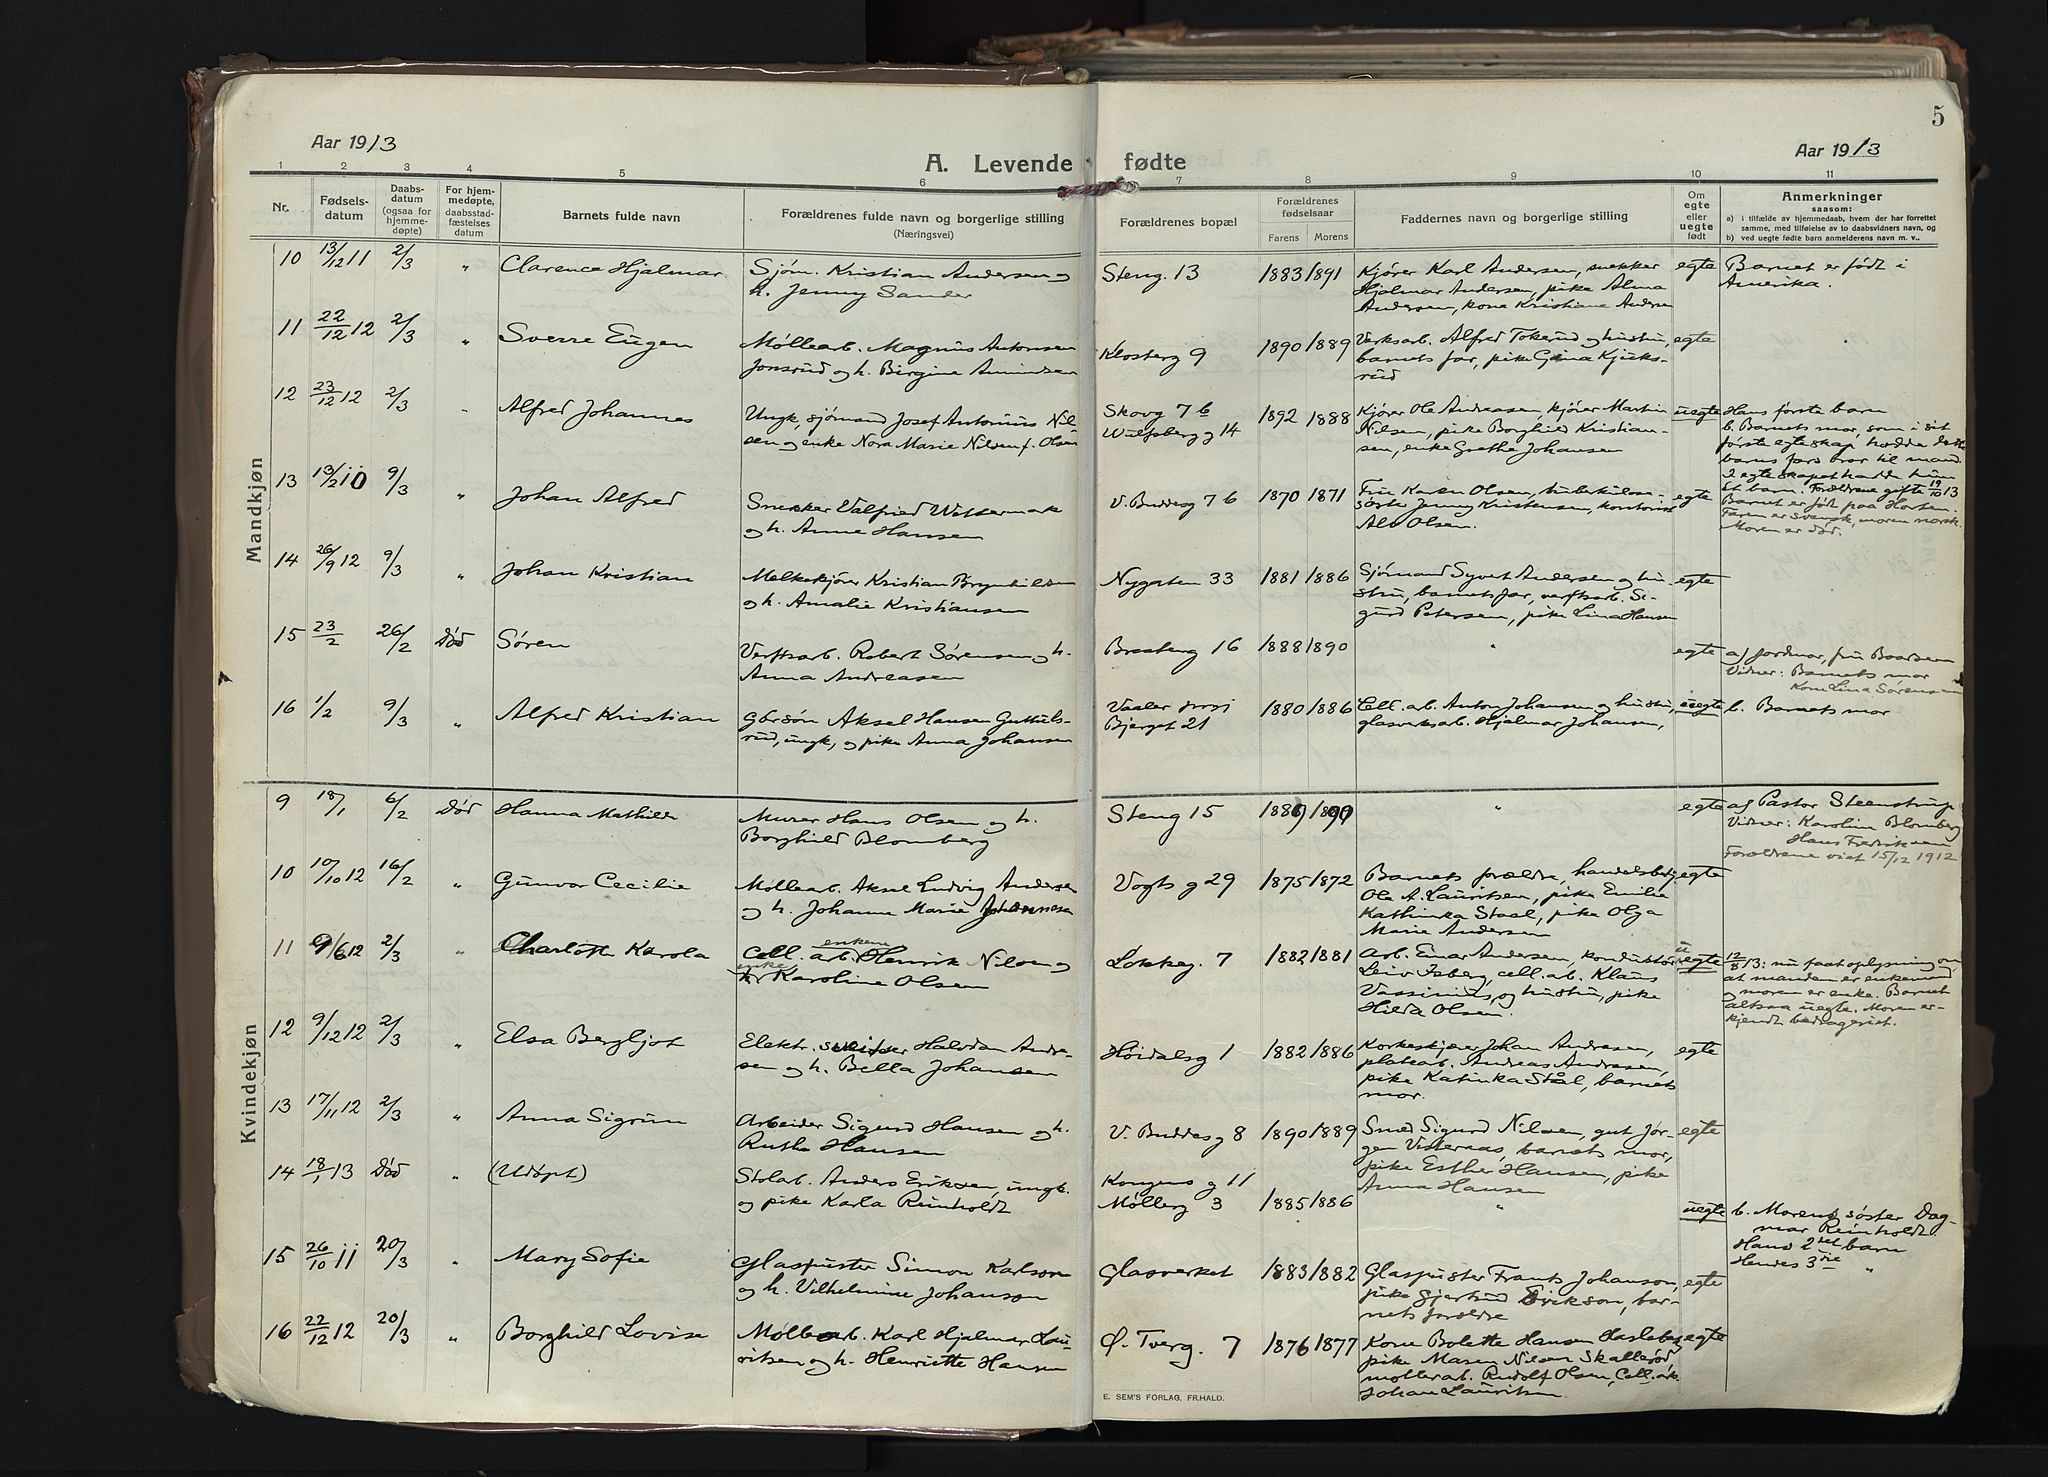 5
Aar 1913
A. Levende fødte
Aar 1913
1 2 3 4 5 6 7 8 9 10 11
Nr.
Fødsels-
datum
Daabs-
datum
(ogsaa for
hjemme-
døpte)
For hjem-
medøpte,
daabsstad-
fæstelses
datum
Barnets fulde navn
Forældrenes fulde navn og borgerlige stilling
(Næringsvei)
Forældrenes bopæl
Forældrenes
fødselsaar
Farens Morens
Faddernes navn og borgerlige stilling
Om
egte
eller
uegte
født
Anmerkninger
saasom:
a) i tilfælde av hjemmedaab, hvem der har forrettet
samme, med tilføielse av to daabsvidners navn, og
b) ved uegte fødte barn anmelderens navn m. v..
Mandkjøn
10 13/12 11 2/3 " Clarence Hjalmar
Sjøm. Kristian Andersen og
h. Jenny Sander
Steng. 13 1883 1891
Kjører Karl Andersen, snekker
Hjalmar Andersen, pike Alma
Andersen, kone Kristiane Andersen
egte
Barnet er født i
Amerika.
11 22/12 12 2/3 " Sverre Eugen
Møllearb. Magnus Antonsen
Jonsrud og h. Birgine Amundsen
Klosterg 9 1890 1889
Verksarb. Alfred Tokerud og hustru,
barnets far, pike Gina Kjuks-
rud
egte
12 23/12 12 2/3 " Alfred Johannes
Ungk, sjømand Josef Antonius Nil-
sen og enke Nora Marie Nilsen f. Olsen
Skovg 7 b
Wulfsberg g 14
1892 1888
Kjører Ole Andreasen, kjører Martin
Nilsen, pike Borghild Kristian-
sen, enke Grethe Johansen
uegte
Hans første barn
b. Barnets mor, som i sit
første egteskap hadde dette
barns fars bror til mand.
I egteskapet hadde hun
et barn. Forældrene gifte 19/10 13
13 13/2 10 9/3 " Johan Alfred
Snekker Valfried Wettermark
og h. Anne Hansen
V. Buddesg 7 b 1870 1871
Fru Karen Olsen, tuberkulose-
søster Jenny Kristensen, kontorist
Alv Olsen.
egte
Barnet er født paa Horten.
Faren er svensk, moren norsk.
Moren er død.
14 26/9 12 9/3 " Johan Kristian
Melkekjører Kristian Brynhildsen
og h. Amalie Kristiansen
Nygaten 33 1881 1886
Sjømand Syvert Andersen og hu-
stru, barnets far, verftsarb. Si-
gurd Petersen, pike Lina Hansen
egte
15 23/2 26/2 Død Søren
Verftsarb. Robert Sørensen og h.
Anna Andreasen
Braateng 16 1888 1890
"
egte
a) jordmor, fru Baardsen
Vidner: Barnets mor
Kone Lina Sørensen
16 1/2 9/3 " Alfred Kristian
Gbrsøn Aksel Hansen Guttuls-
rud, ungk, og pike Anna Johansen
Vaaler
Bjerget 21
1880 1886
Cell. arb. Anton Johansen og hustru,
glasverksarb. Hjalmar Johansen,
uegte
b. Barnets mor
Kvindekjøn
9 18/1 6/2 Død Hanna Mathilde
Murer Hans Olsen og h.
Borghild Blomberg
Steng 15 1889
"
egte
a) Pastor Steenstrup
Vidner: Karoline Blomberg
Hans Fredriksen
Forældrene viet 15/12 1912
10 10/10 12 16/2 " Gunvor Cecilie
Møllearb. Aksel Ludvig Andersen
og h. Johanne Marie Johannesen
Vogts g 29 1875 1872
Barnets forældre, handelsbetj.
Ole A. Lauritsen, pike Emilie
Kathinka Staal, pike Olga
Marie Andersen
egte
11 9/6 12 2/3 " Charlotte Karola
Cell. arb. enkem. Henrik Nilsen og
enke Karoline Olsen
Løkkeg. 7 1882 1881
Arb. Einar Andersen, konduktør
Leiv Isberg, cell. arb. Klaus
Vassinius og hustru, pike
Hilda Olsen.
uegte
12/8 13: nu faat oplysning om
at manden er enkemand
og moren er enke. Barnet
altsaa uegte. Moren er-
kjendt bedrageriet.
12 9/12 12 2/3 " Elsa Bergljot
Elektr. sveitser Halvdan Andre-
sen og h. Bella Johansen
Høidalsg 1 1882 1886
Korkeskjærer Johan Andresen,
platearb. Andreas Andresen,
pike Katinka Stål, barnets
mor.
egte
13 17/11 12 2/3 " Anna Sigrun
Arbeider Sigurd Hansen og h.
Ruth Hansen
V. Buddesg 8 1890 1889
Smed Sigurd Nilsen, gut Jør-
gen Visternes, barnets mor,
pike Esther Hansen, pike
Anna Hansen
egte
14 18/1 13 Død " (Udøpt)
Stolarb. Anders Eriksen, ungk.
og pike Karla Reinholdt
Kongens g 11
Møllerg 3
1885 1886
"
uegte
b. Morens søster Dag-
mar Reinholdt.
Hans 2det barn
Hendes 3die "
15 26/10 11 20/3 " Mary Sofie
Glaspuster Simon Karlson
og h. Vilhelmine Johanson
Glasverket 1883 1882
Glaspuster Frants Johanson,
pike Gjertrud Erikson, bar-
nets forældre
egte
16 22/12 12 20/3 " Borghild Lovise
Møllearb. Karl Hjalmar Lau-
ritsen og h. Henriette Hansen
Ø. Tverg. 7 1876 1877
Kone Bolette Hansen Hasleberg,
pike Maren Nilsen Skallerød,
møllerarb. Rudolf Olsen, Cell. arb.
Johan Lauritsen
egte
E. SEM'S FORLAG. FR.HALD.